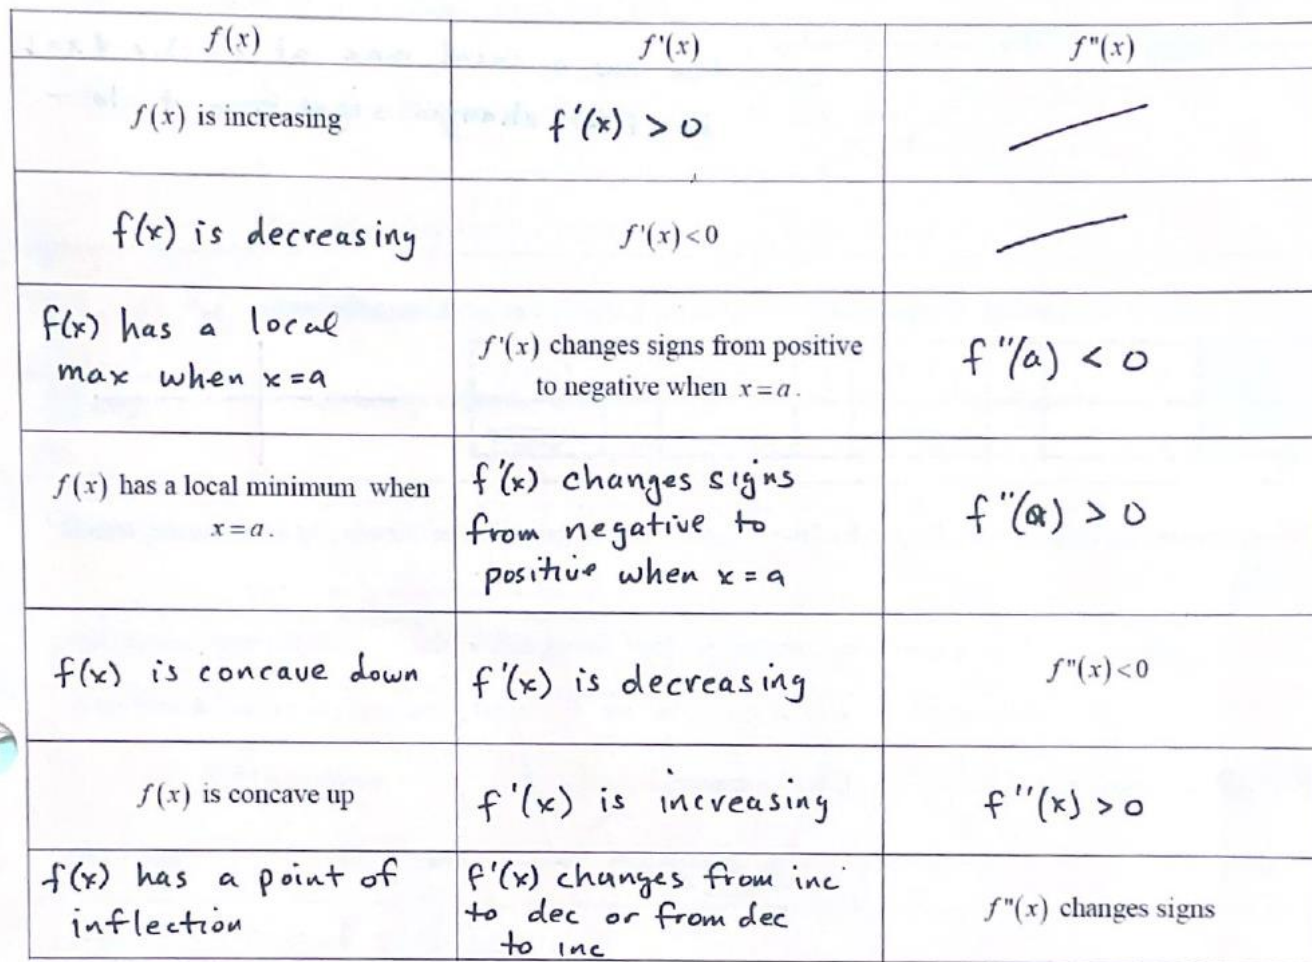 f(x) f'(x) f"(x)
f(x) is increasing f'(x) > 0
f(x) is decreasing f'(x)<0
f(x) has a local
max when x=a
f'(x) changes signs from positive
to negative when x=a.
f"(a) < 0
f(x) has a local minimum when
x=a.
f'(x) changes signs
from negative to
positive when x=a
f"(a) > 0
f(x) is concave down f'(x) is decreasing f"(x)<0
f(x) is concave up f'(x) is increasing f"(x) > 0
f(x) has a point of
inflection
f'(x) changes from inc
to dec or from dec
to inc
f"(x) changes signs